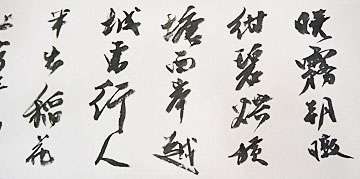 曉霧朝暾
紺碧烘橫
塘西岸越
城東行人
半出稻花